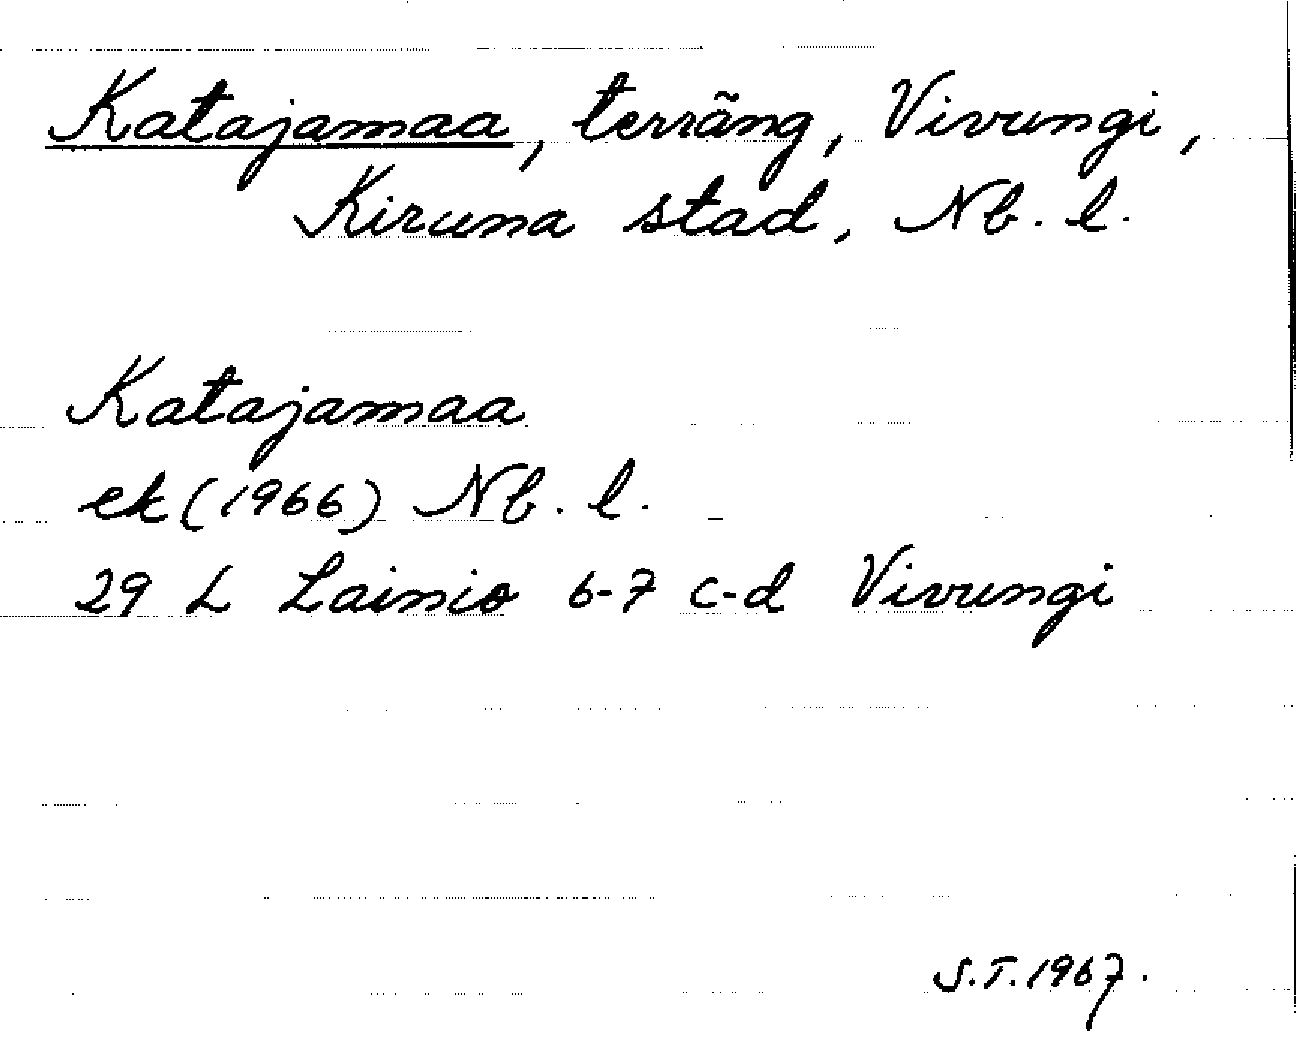 Katajamaa, terräng, Vivungi,
Kiruna stad, Nb. l.
Katajamaa
ek (1966) Nb. l.
29 L Lainio 6-7 c-d Vivungi
S.T. 1967.